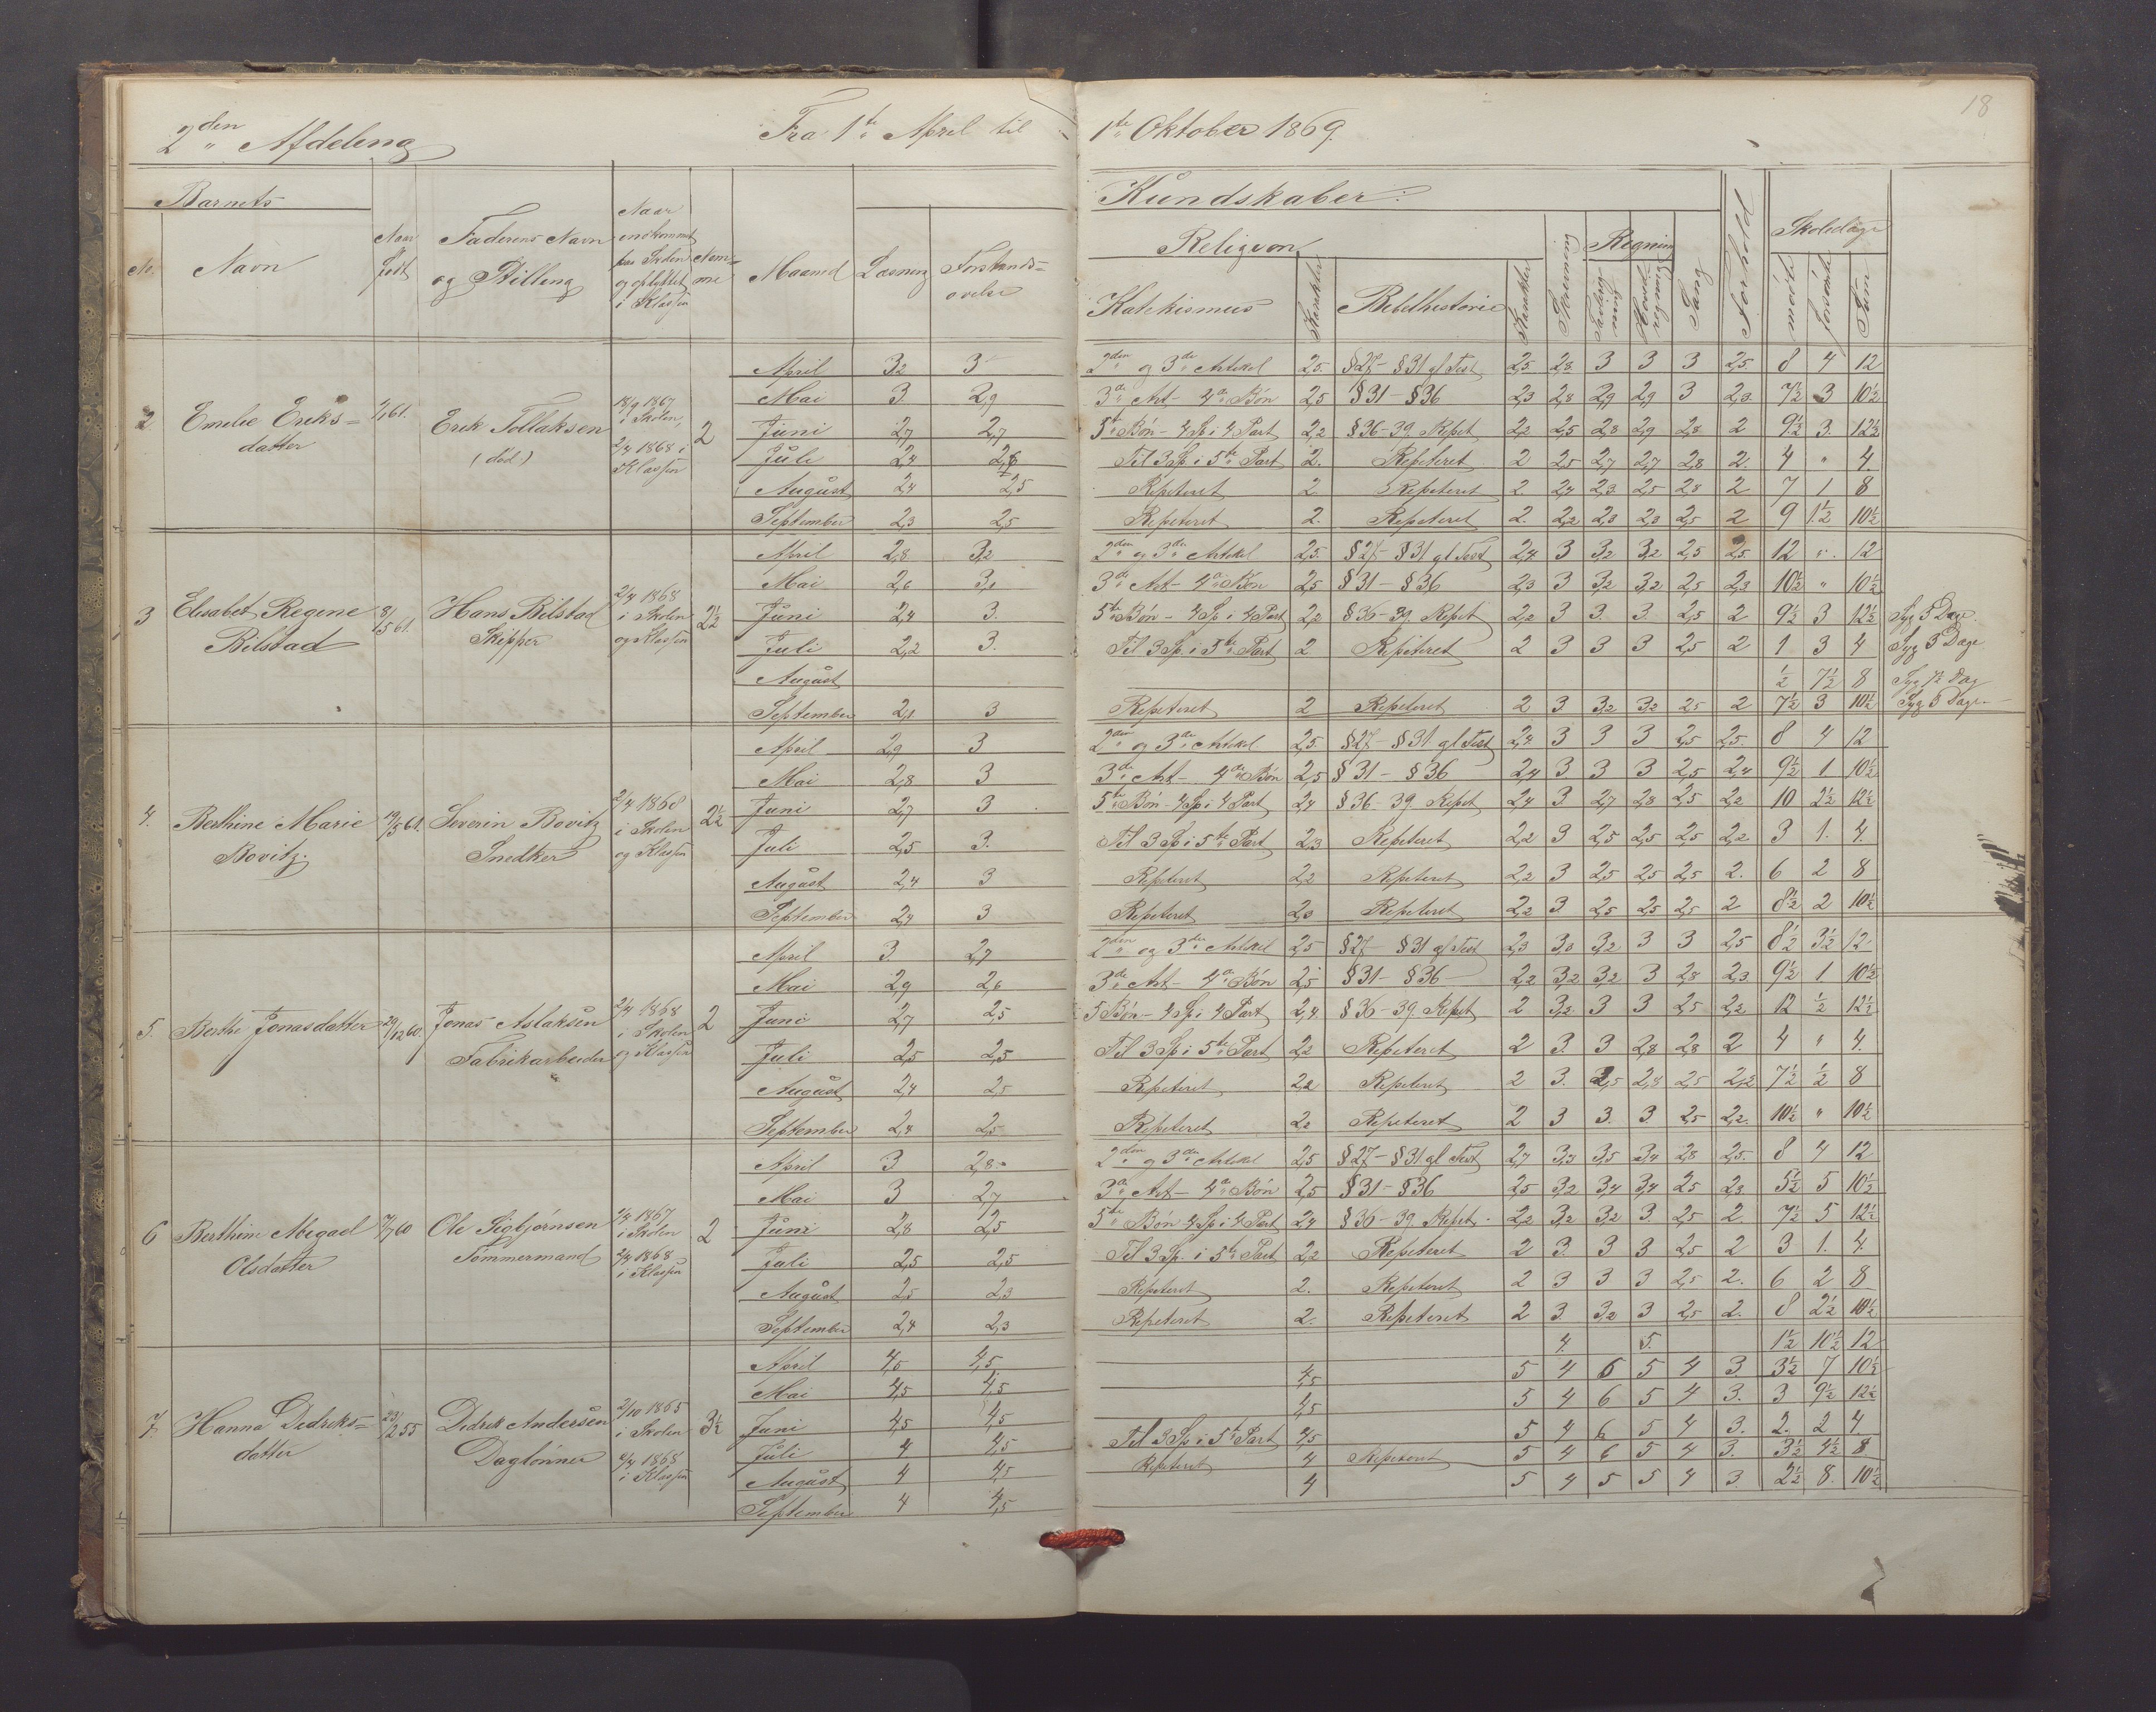 18
2den Afdeling Fra 1ste April til 1ste Oktober 1869.
Barnets Kundskaber:
No. Navn Naar født Faderens Navn og Stilling Naar indkommet paa Skolen og opflyttet i Klassen Nummer Maaned Læsning Forstandsøvelse Religion Katekismus Karakter Bibelhistorie Karakter Skrivning Regning Tavleregning Hovedregning Sang Forhold Skoledage mødte forsømte Sum
2 Emelie Eriksdatter Erik Tollaksen (død) 18/9 1867 i Skolen, 2/4 1868 i Klassen 2
April 3,2 3 2den og 3die Artikel 2,5 §27 - §31 gl Test 2,5 2,8 3 3 3 2,5 8 4 12
Mai 3 2,9 3die Art - 4de Bøn 2,5 §31 - §36 2,3 2,8 2,9 2,9 3 2,3 7½ 3 10½
Juni 2,7 2,7 5te Bøn - 4 Sp i 4 Part 2,2 §36-39. Repet 2,2 2,5 2,8 2,9 2,8 2 9½ 3. 12½
Juli 2,4 Til 3 Sp i 5te Part 2. Repeteret 2 2,5 2,7 2,7 2,8 2. 4 " 4.
August 2,4 2,5 Repeteret 2 Repeteret 2 2,4 2,3 2,5 2,8 2 7 1 8
September 2,3 2,5 Repeteret 2. Repeteret 2. 2,2 2,3 2,3 2,5 2 9 1½ 10½
3 Elisabet Regine Bilstad 8/5 61. Hans Bilstad Skipper 2/4 1868 i Skolen og Klassen 2½
April 2,8 3,2 2den og 3die Artikel 2,5 §27 - §31 gl Test 2,4 3 3,2 3,2 2,5 2,5 12 " 12
Mai 2,6 3,1 3die Art - 4de Bøn 2,5 §31 - §36 2,3 3 3,2 3,2 2,5 2,3 10½ " 10½
Juni 2,4 3. 5te Bøn - 4 Sp i 4 Part 2,2 §36-39 Repet 2,2 3 3. 3. 2,5 2 9½ 3 12½ Syg 3 Dage.
Juli 2,2 3. Til 3 Sp. i 5te Part 2 Repeteret 2 3 3 3 2,5 2 1 3 4 Syg 3 Dage
August ½ 7½ 8 Syg 7½ Dag
September 2,1 3 Repeteret 2 Repeteret 2 3 3,2 3,2 2,5 2 7½ 3 10½ Syg 3 Dage
4. Berthine Marie Bovitz. Severin Bovitz Snedker 2/4 1868 i Skolen og Klassen 2½
April 2,9 3 2den og 3die Artikel 2,5 §27 - §31 gl Test 2,4 3 3 3 2,5 2,5 8 4 12
Mai 2,8 3 3die Art - 4de Bøn 2,5 §31 - §36 2,4 3 3 3 2,5 2,4 9½ 1 10½
Juni 2,7 3 5te Bøn - 4 Sp i 4 Part 2,4 §36-39. Repet 2,4 3 2,7 2,8 2,5 2,2 10 2½ 12½
Juli 2,5 3. Til 3 Sp i 5te Part 2,3 Repeteret 2,2 3 2,5 2,5 2,5 2,2 3 1. 4.
August 2,4 3 Repeteret 2,2 Repeteret 2,2 3 2,5 2,5 2,5 2. 6 2 8
September 2,4 3 Repeteret 2,3 Repeteret 2,2 3 2,5 2,5 2,5 2 8½ 2 10½
5. Berthe Jonasdatter 29/12 60. Jonas Aslaksen Fabrikarbeider 2/4 1868 i Skolen og Klassen 2
April 3 2,7 2den og 3die Artikel 2,5 §27 - §31 gl Test 2,3 3,3 3,2 3 3 2,5 8½ 3½ 12
Mai 2,9 2,6 3die Art - 4de Bøn 2,5 §31 - §36 2,2 3,2 3,2 3 2,8 2,3 9½ 1 10½
Juni 2,7 2,5 5 Bøn - 4 Sp i 4 Part 2,4 §36-39. Repet 2 3,2 3 3 2,5 2,2 12 ½ 12½
Juli 2,5 2,5 Til 3 Sp i 5te Part 2,2 Repeteret 2 3. 3 2,8 2,8 2 4 " 4.
August 2,4 2,5 Repeteret 2,2 Repeteret 2 3. 2,5 2,8 2,5 2,2 7½ ½ 8
September 2,4 2,5 Repeteret 2,2 Repeteret 2 3 3. 3. 2,5 2,2 10½ " 10½
6 Berthine Abigael Olsdatter Ole Sigbjørnsen Tømmermand 1867 i Skolen 2/4 1868 i Klassen 2
April 3 2,8 2den og 3die Artikel 2,5 §27 - §31 gl Test 2,7 3,3 3,5 3,4 2,8 2,5 8 4 12
Mai 3 2,7 3die Art - 4de Bøn 2,5 §31 - §36 2,5 3,2 3,4 3,4 2,5 2,3 5½ 5 10½
Juni 2,8 2,5 5te Bøn 4 Sp i 4 Part 2,4 §36-39 Repet. 2,2 3,2 3,2 3. 2,5 2 7½ 5 12½
Juli 2,5 2,5 Til 3 Sp. i 5te Part 2,2 Repeteret 2 3. 3 3 2,5 2 3 1. 4.
August 2,5 2,3 Repeteret 2. Repeteret 2 3 3 3 2,5 2. 6 2 8
September 2,4 2,3 Repeteret 2. Repeteret 2 3. 3,2 3 2,5 2. 8 2½ 10½
7. Hanna Didriksdatter 23/2 55 Didrik Andersen Daglønner 2/10 1865 i Skolen 1868 i Klassen 3½
April 4,5 4. 5. 1½ 10½ 12
Mai 4,5 4,5 4,5 5 4 6 5 4 3 3½ 7 10½
Juni 4,5 4,5 4,5 5 4 6 5 4 3. 3 9½ 12½
Juli 4 4,5 Til 3 Sp i 5te Part 4,5 5 4 6 5 4 3. 2. 2 4.
August 4 4,5 Repeteret 4 Repeteret 5 4 6 5 4 3. 3½ 4½ 8
September 4 4,5 4 5 4 5 5 4 3. 2½ 8. 10½